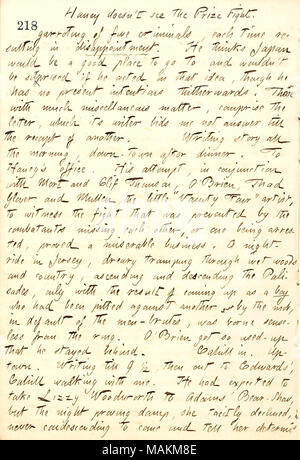 Haney doesn't see the Prize Fight.
218
garroting of five criminals, each time re-
sulting in disappointment. He thinks Japan
would be a good place to go to and wouldn't
be surprised if he acted on that idea, though he
has no present intentions thitherwards. This
with much miscellaneous matter, comprise the
letter, which its writer bids me not answer till
the receipt of another. Writing story all
the morning, down-town after dinner. To
Haney's office. His attempt, in conjunction
with Mort and Clif Thomson, O'Brien, Thad
Glover and Mullen, the little "Vanity Fair" artist,
to witness the fight that was prevented by the
combatants missing each other, or one being arres-
ted, proved a miserable business. A night-
ride in Jersey, dreary tramping through wet woods
and country, ascending and descending the Pali-
sades, only with the result of coming up as a boy
who had been pitted against another by the mob,
in default of the men-brutes, was borne sense-
less from the ring. O'Brien got so used-up
that he stayed behind. Cahill in. Up-
town. Writing till 9 1/2, then out to Edwards',
Cahill walking with me. He had expected to
take Lizzy Woodworth to Adams' Bear-Show,
but the night proving damp, she tacitly declined,
never condescending to come and tell her determi
alamy
Image ID: MAKM8E
www.alamy.com